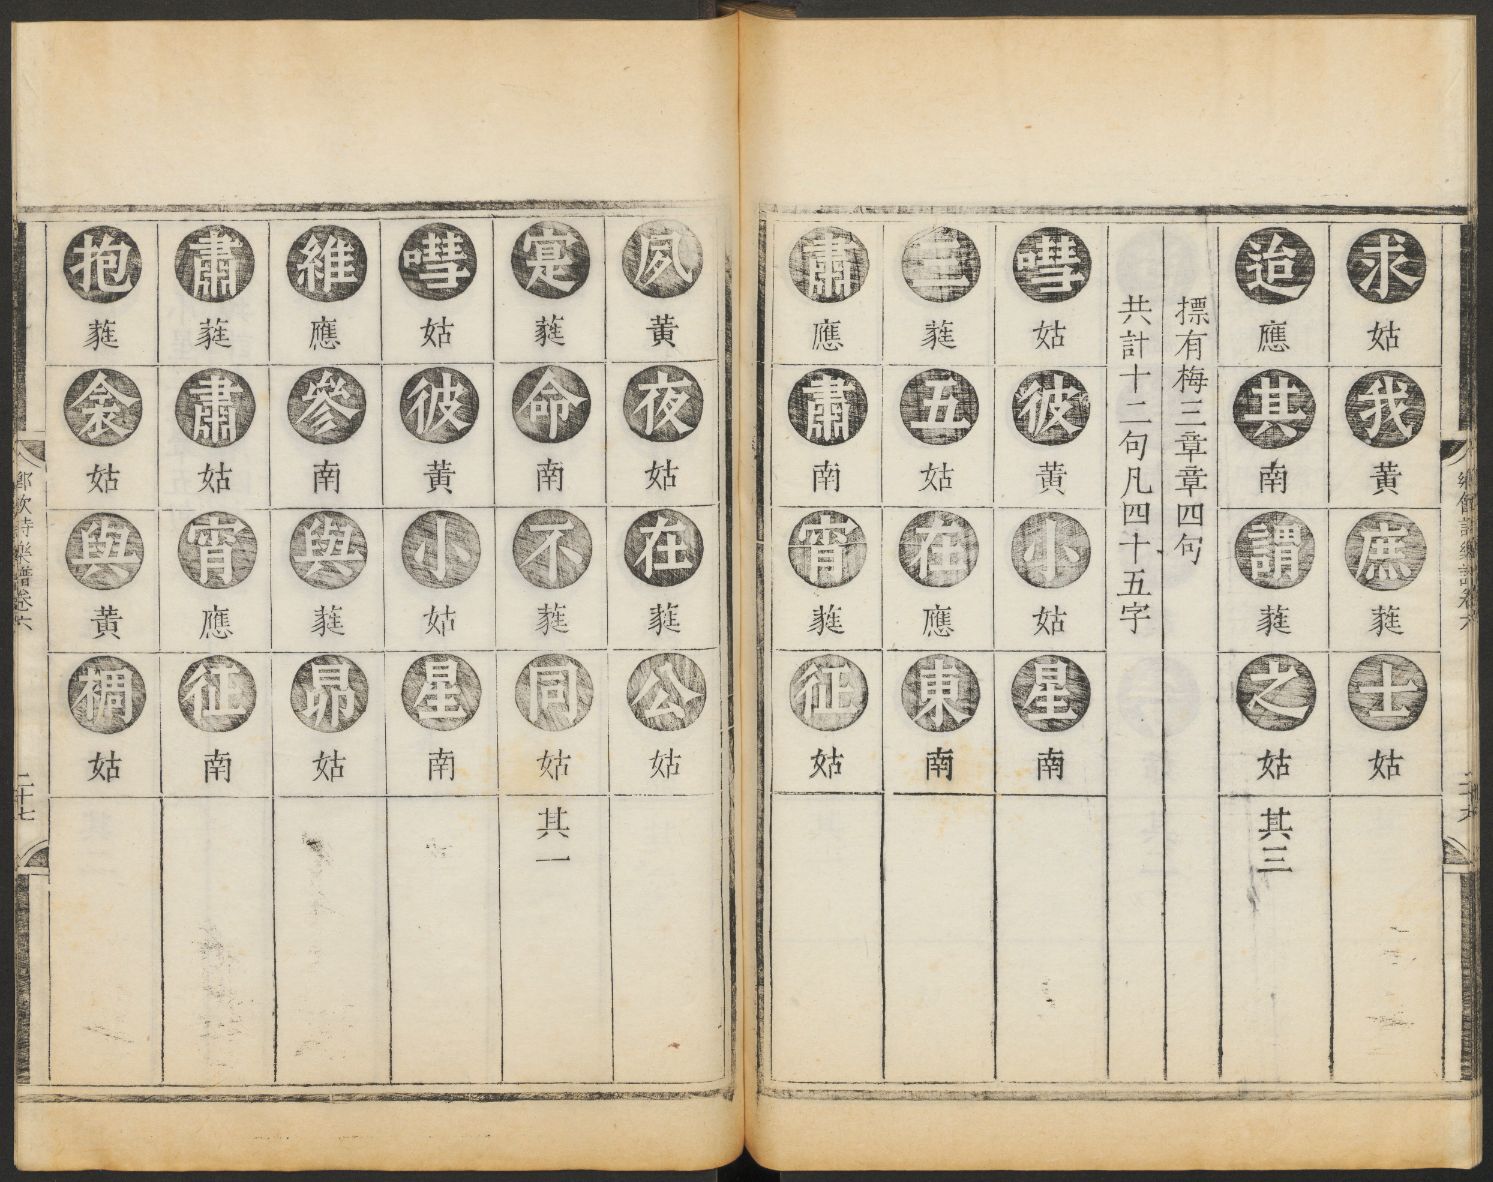 求姑我黄庶蓷士姑
迨應其南謂蓷之姑其三
摽有梅三章章四句
共計十二句凡四十五字
嘒姑彼黄小姑星南
三蓷五姑在應東南
肅應肅南宵蓷征姑
夙黄夜姑在蓷公姑
寔蓷命南不蓷同姑其一
嘒姑彼黄小姑星南
維應參南與蓷昴姑
肅蓷肅姑宵應征南
抱蓷衾姑與黄裯姑
鄉飲詩樂譜卷六
二十七